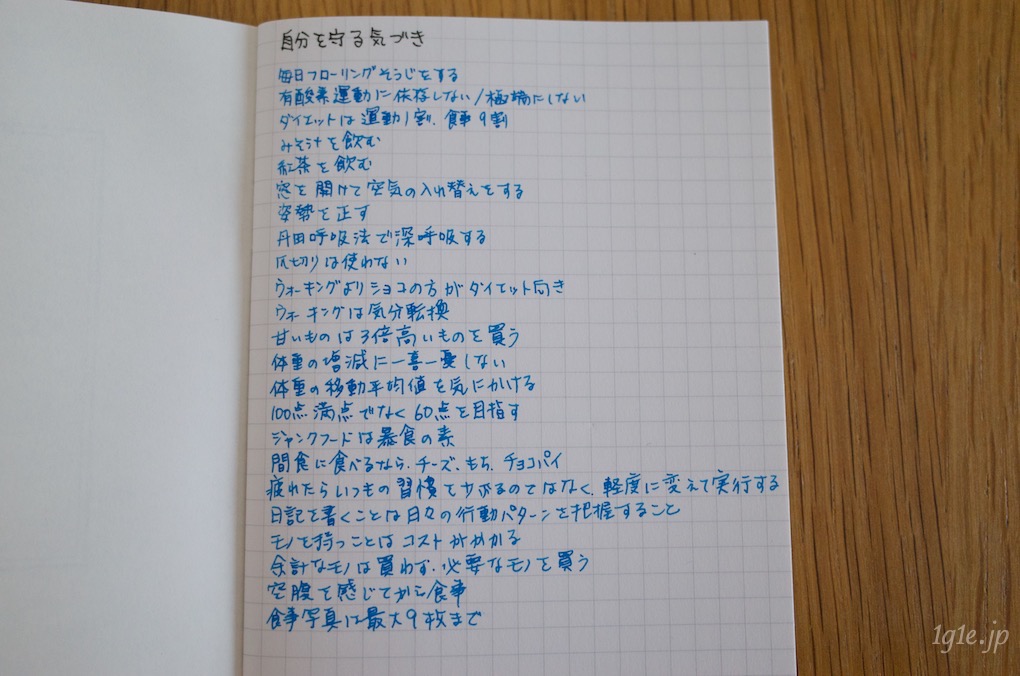 自分を守る気づき
毎日フローリングそうじをする
有酸素運動に依存しない/極端にしない
ダイエットは運動1割、食事9割
みそ汁を飲む
紅茶を飲む
窓を開けて空気の入れ替えをする
姿勢を正す
丹田呼吸法で深呼吸する
爪切りは使わない
ウォーキングよりジョコの方がダイエット向き
ウォーキングは気分転換
甘いものは3倍高いものを買う
体重の増減に一喜一憂しない
体重の移動平均値を気にかける
100点満点でなく60点を目指す
ジャンクフードは暴食の素
間食に食べるなら、チーズ、もち、チョコパイ
疲れたらいつもの習慣をやぶるのではなく、軽度に変えて実行する
日記を書くことは日々の行動パターンを把握すること
モノを持つことはコストがかかる
余計なモノは買わず、必要なモノを買う
空腹を感じてから食事
食事写真は最大9枚まで
1g1e.jp